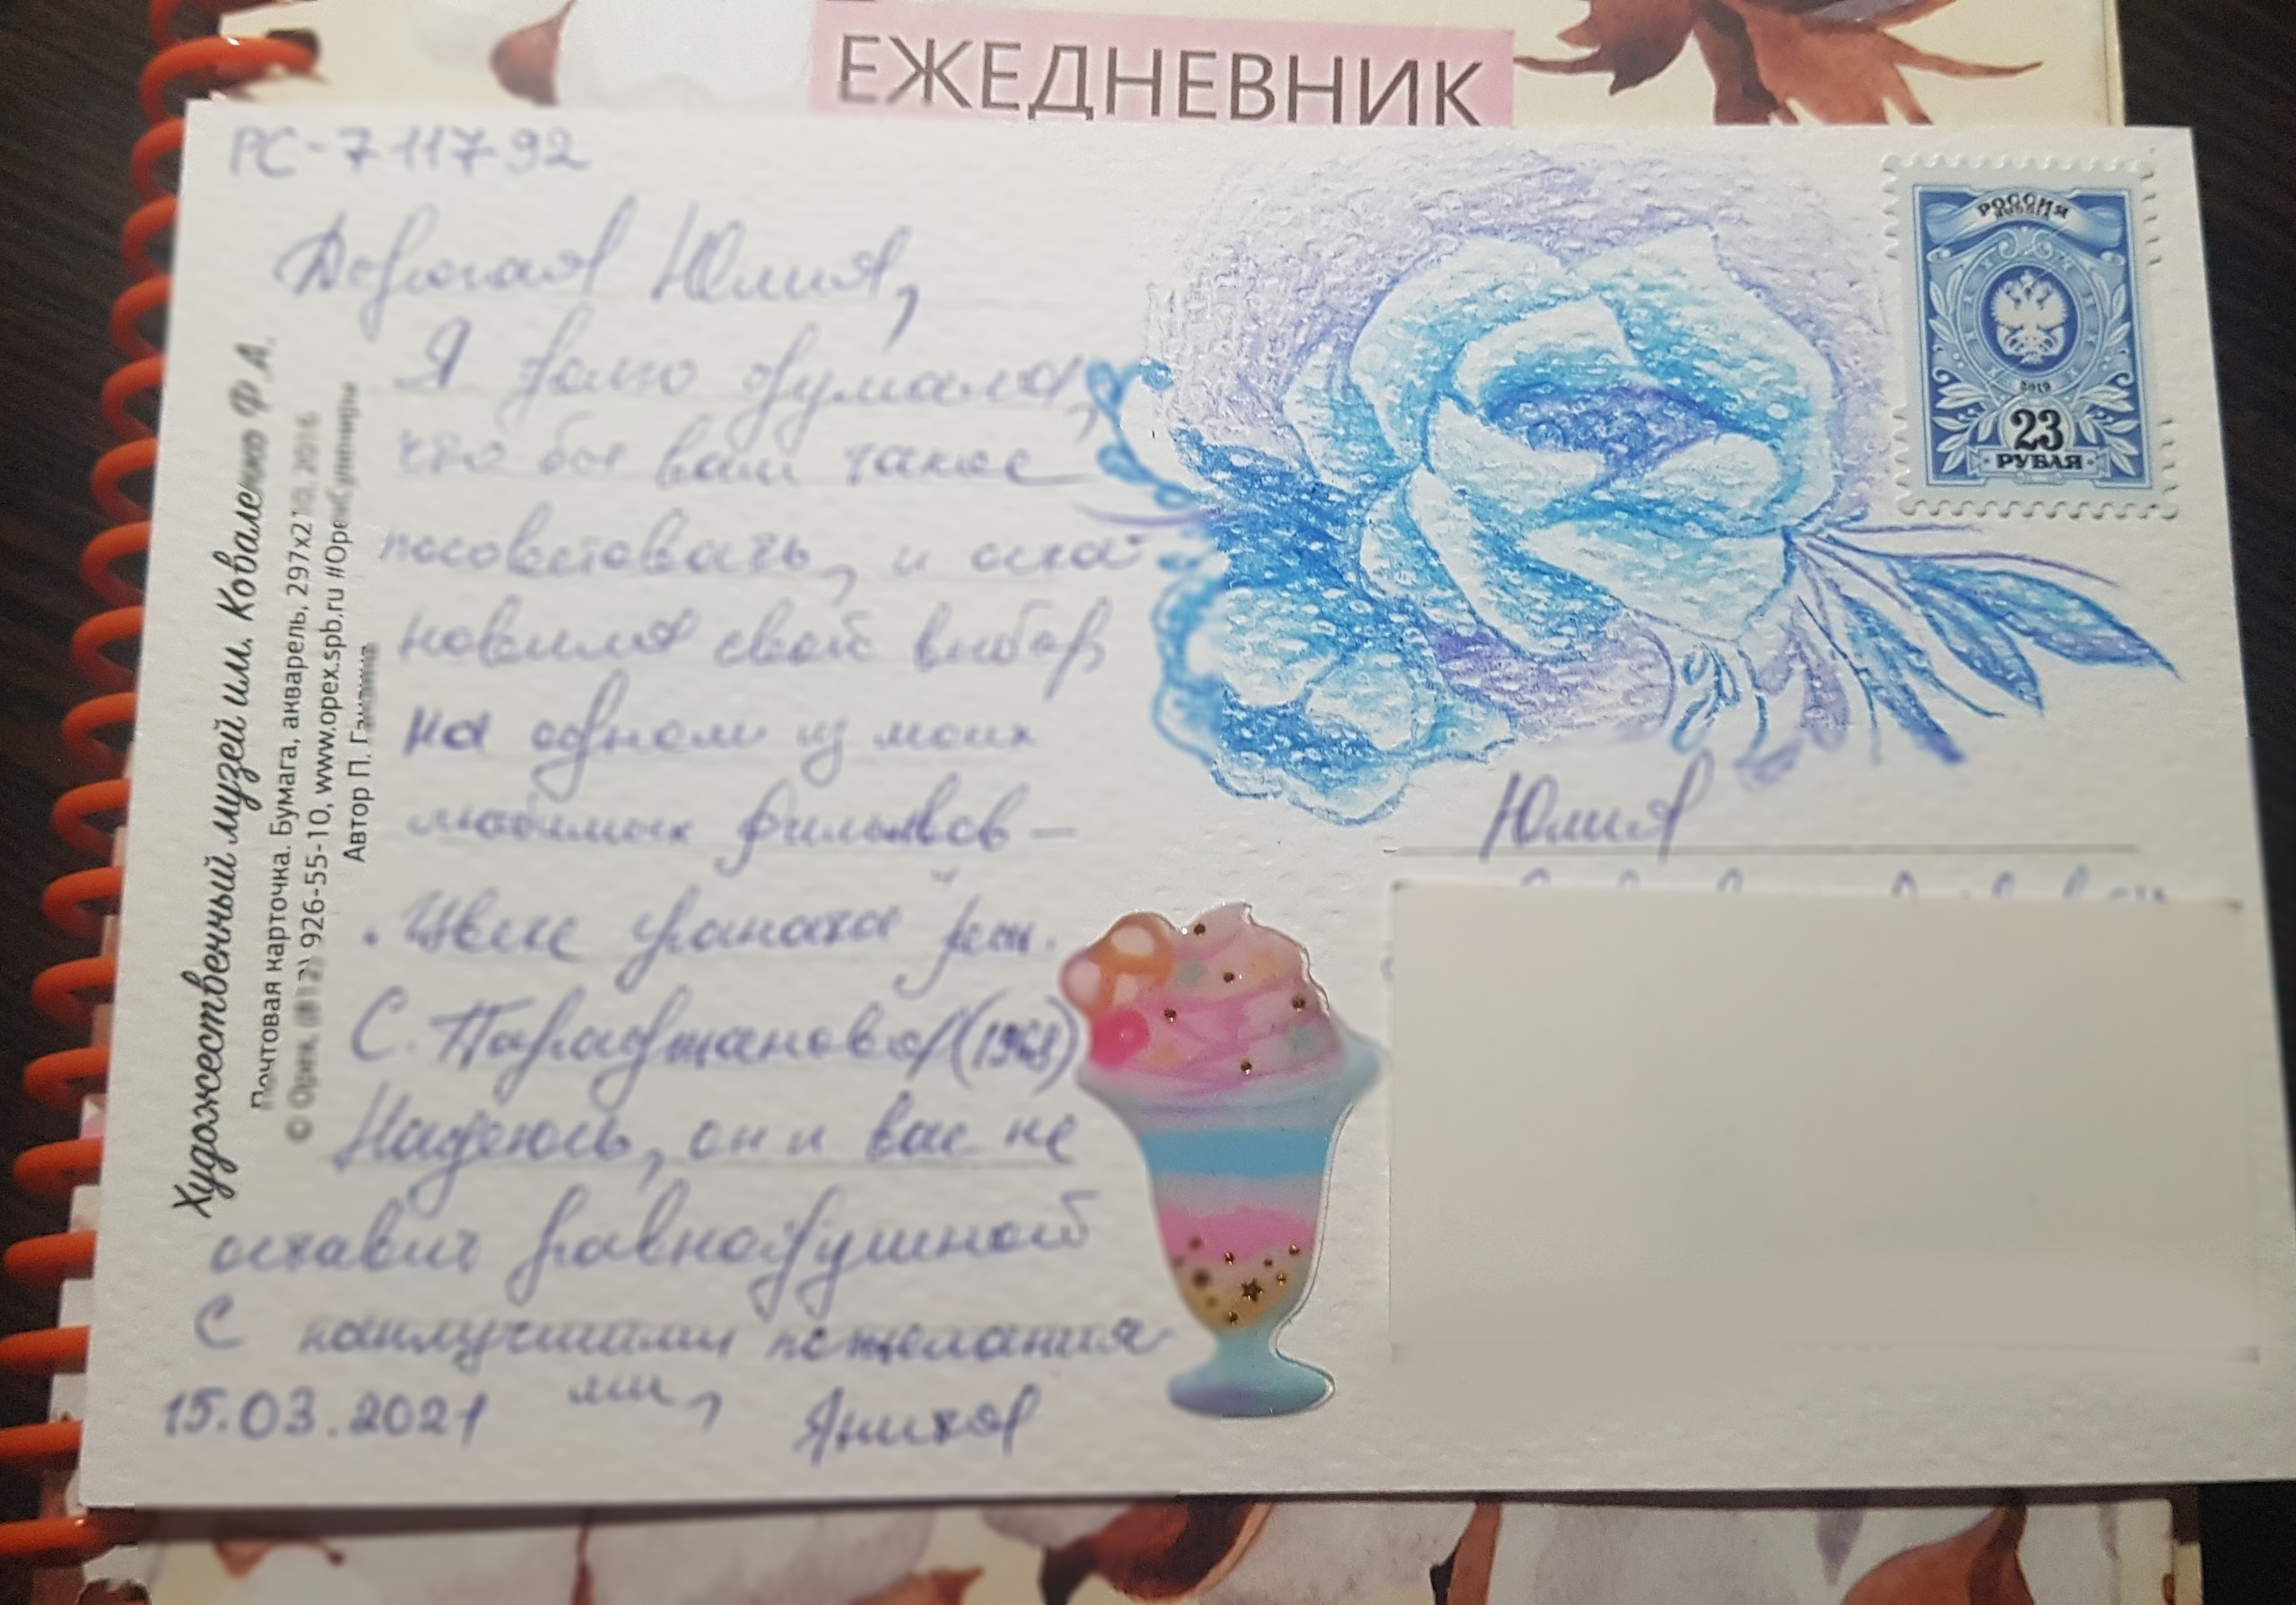 ЕЖЕДНЕВНИК
PC-7117792
Дорогая Юлия,
Я долго думала,
что бы вам такое
посоветовать, и оста-
новила свой выбор
на одном из моих
любимых фильмов –
"Цвет граната" реж.
С. Параджанова (1968)
Надеюсь, он и вас не
оставит равнодушной
С наилучшими пожелания
ми,
15.03.2021
Художественный музей им. Коваленко Ф.А.
Почтовая карточка. Бумага, акварель, 297х210, 2016
© Орех, (812) 926-55-10, www.opex.spb.ru
Автор П.
РОССИЯ
RUSSIA
2019
23
РУБЛЯ
Юлия